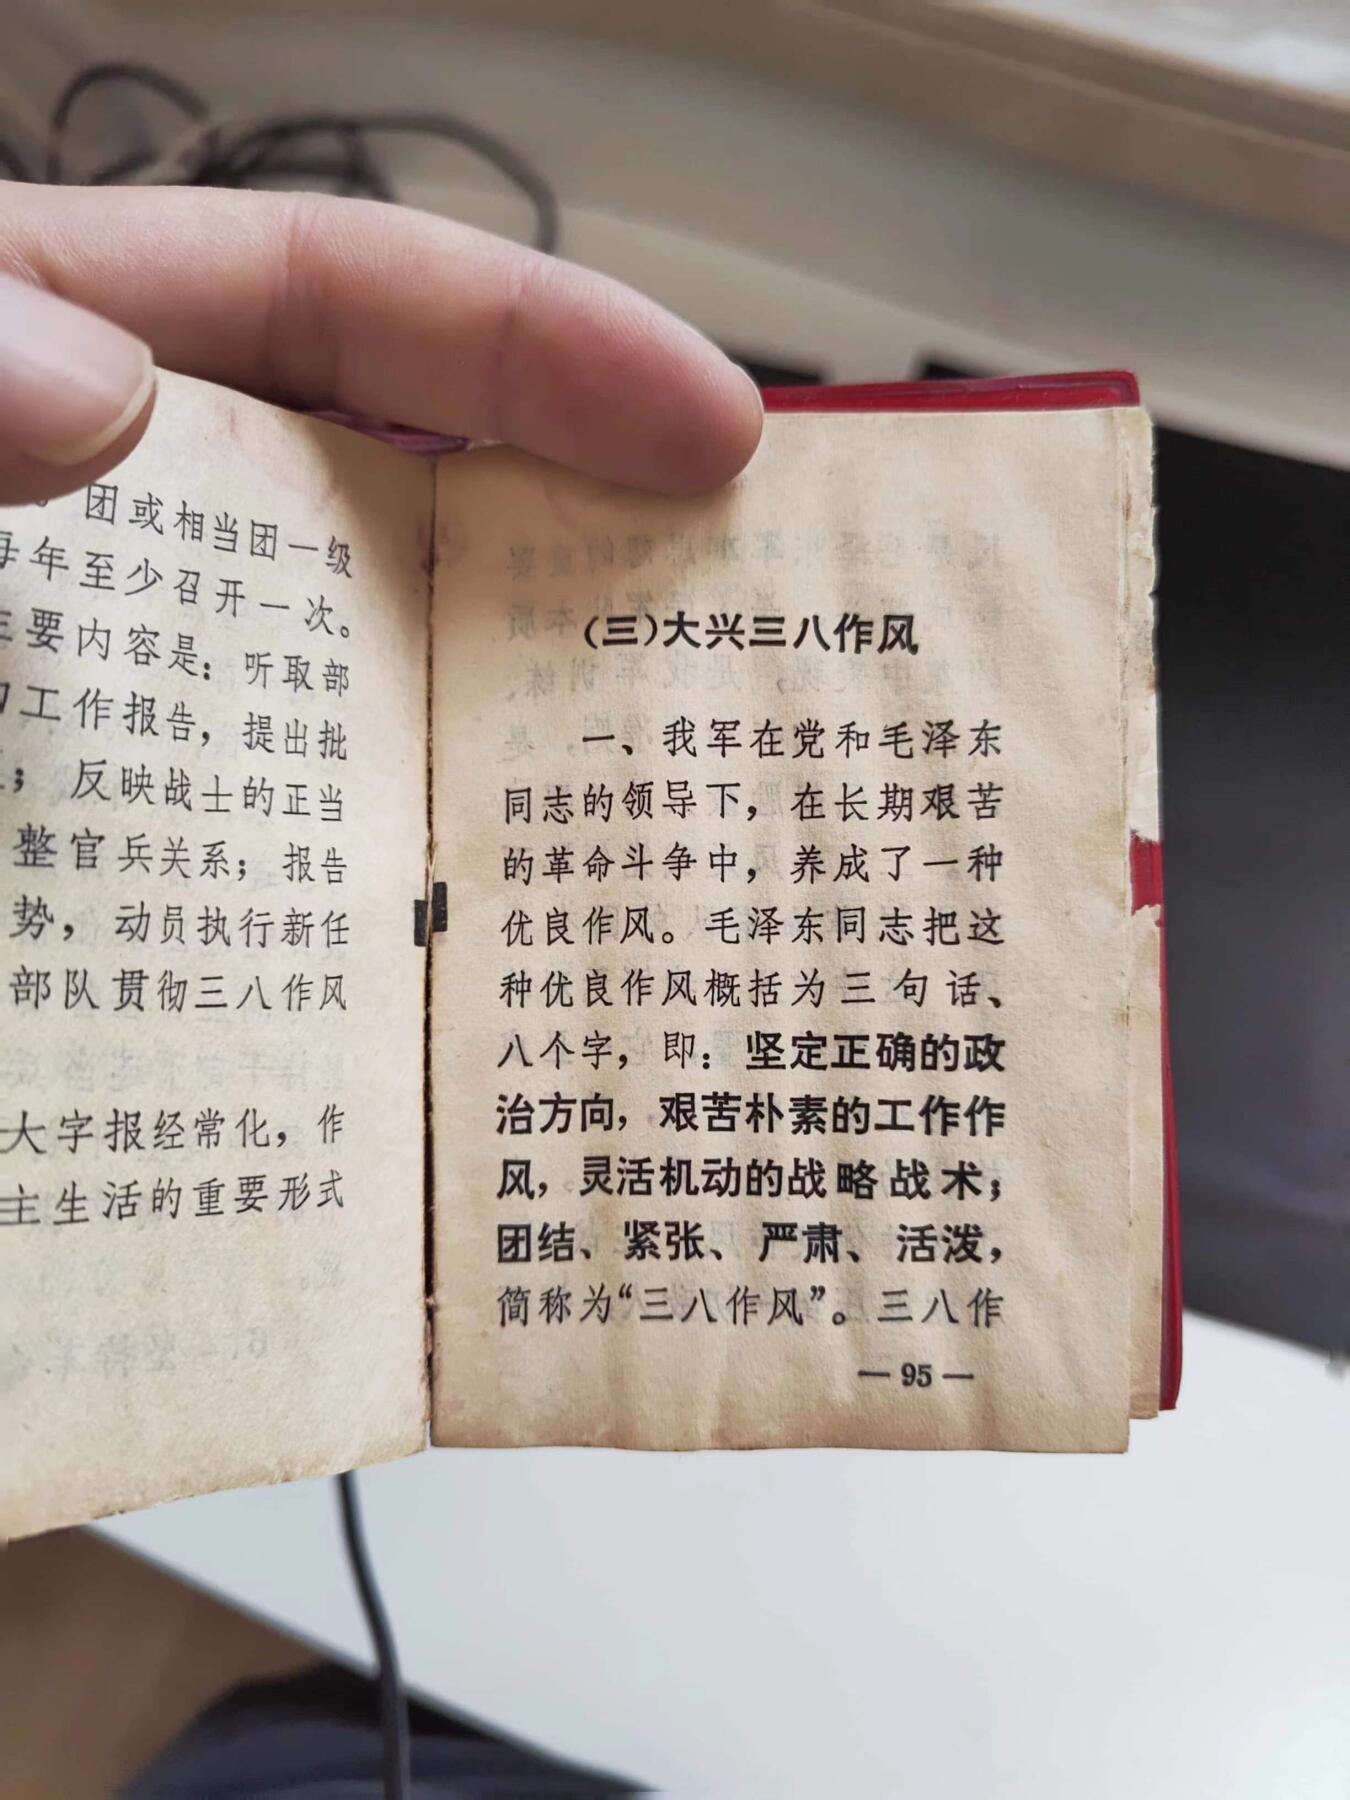 团或相当团一级
每年至少召开一次。
要内容是：听取部
工作报告，提出批
；反映战士的正当
整官兵关系；报告
势，动员执行新任
部队贯彻三八作风
大字报经常化，作
主生活的重要形式
(三)大兴三八作风
一、我军在党和毛泽东
同志的领导下，在长期艰苦
的革命斗争中，养成了一种
优良作风。毛泽东同志把这
种优良作风概括为三句话、
八个字，即：坚定正确的政
治方向，艰苦朴素的工作作
风，灵活机动的战略战术；
团结、紧张、严肃、活泼，
简称为“三八作风”。三八作
— 95 —